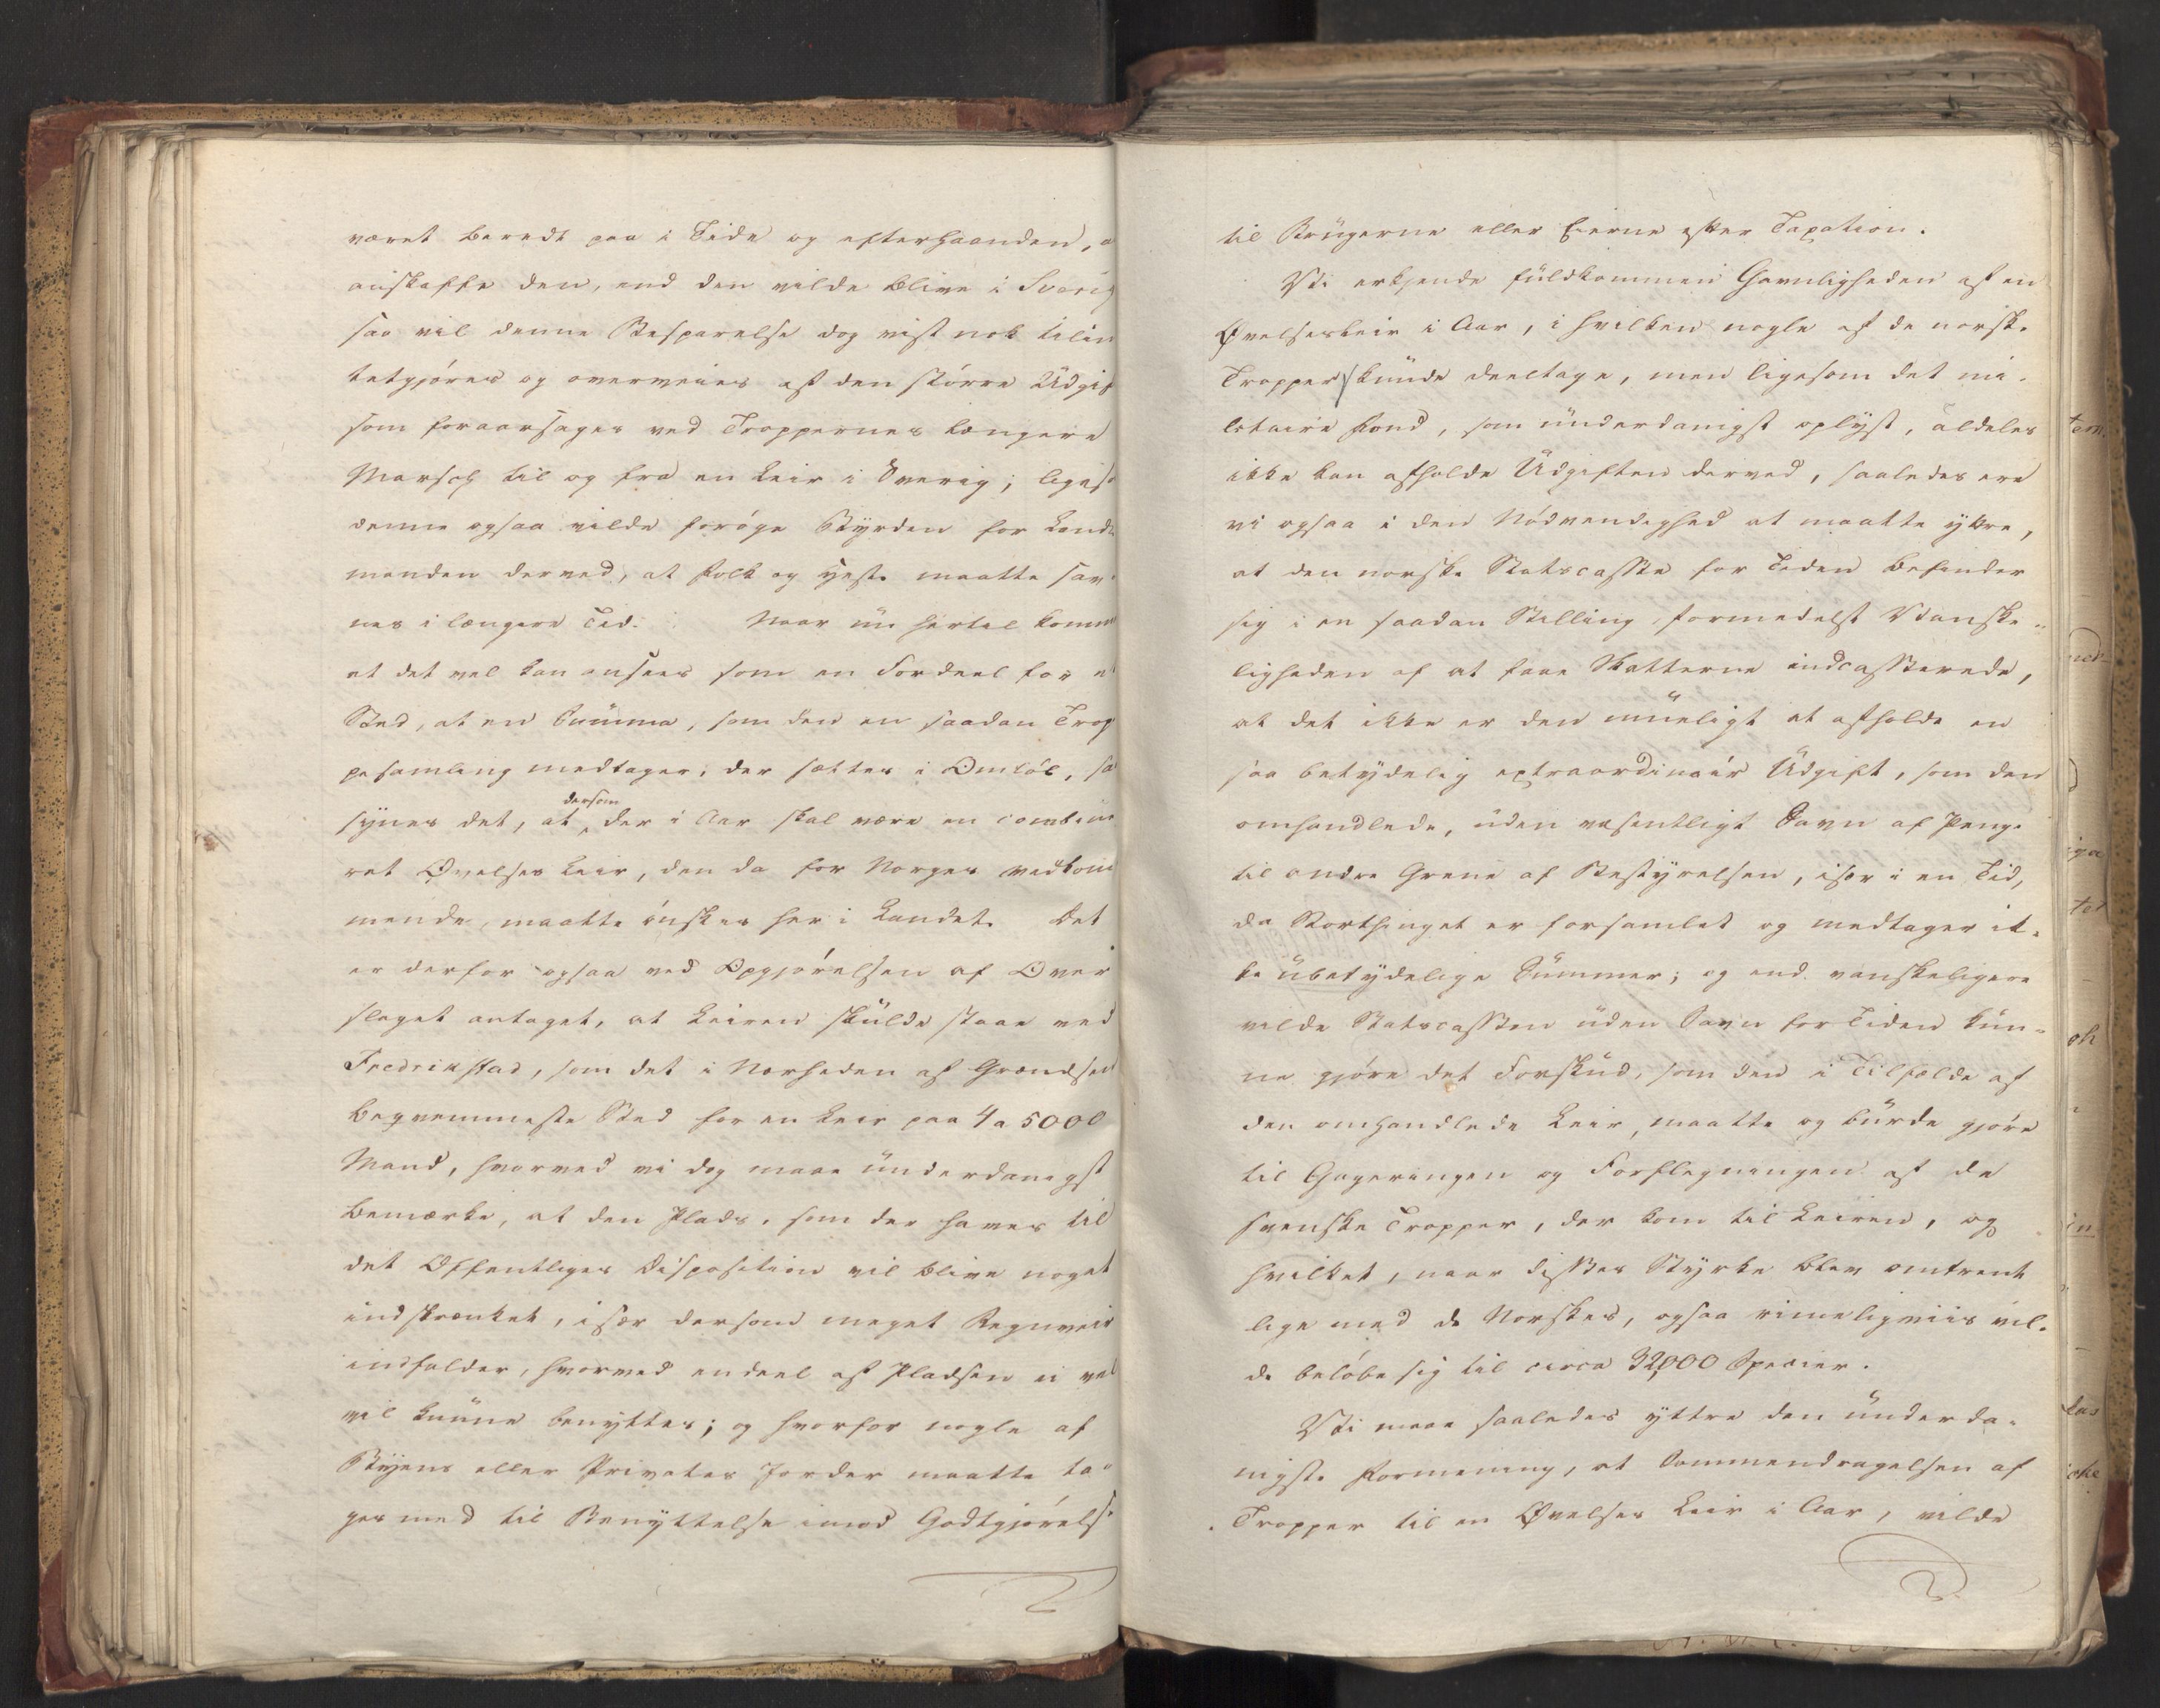 været beredt paa i Tide og efterhaanden, a
anskaffe den, end den vilde blive i Sverig
saa vil denne Besparelse dog vist nok tilin
tetgjøres og overveies af den større Udgif
som foraarsages ved Troppernes længere
Marsch til og fra en Leir i Sverig; ligeso
denne ogsaa vilde forøge Byrden for Land
manden derved, at Folk og Heste maatte sav
nes i længere Tid. Naar nu hertil komme
at det vel kan ansees som en Fordeel for et
Sted, at en Summa, som den en saadan Trop
pesamling medtager, der sættes i Omløb, sa
synes det, at dersom der i Aar skal være en combine
ret Øvelses Leir, den da for Norges vedkom
mende, maatte ønskes her i Landet. Det
er derfor ogsaa ved Opgjørelsen af Over
slaget antaget, at Leiren skulde staae ved
Fredrikstad, som det i Nærheden af Grændsen
beqvemmeste Sted for en Leir paa 4 a 5000
Mand, hvorved vi dog maae underdanigst
bemærke, at den Plads, som der haves til
det Offentliges Disposition vil blive noget
indskrænket, især dersom meget Regnveir
indfalder, hvorved endeel af Pladsen ei vel
vil kunne benyttes; og hvorfor nogle af
Byens eller Privates Jorder maatte ta-
ges med til Benyttelse imod Godtgjørelse
til Brugerne eller Eierne efter Taxation.
Vi erkjende fuldkommen Gavnligheden af en
Øvelsesleir i Aar, i hvilken nogle af de norske
Tropper kunde deeltage, men ligesom det mi-
litaire Fond, som underdanigst oplyst, aldeles
ikke kan afholde Udgiften derved, saaledes ere
vi ogsaa i den Nødvendighed at maatte yttre,
at den norske Statscasse for Tiden befinder
sig i en saadan Stilling formedelst Vanske-
ligheden af at faae Skatterne indcasserede,
at det ikke er den mueligt at afholde en
saa betydelig extraordinair Udgift, som den
omhandlede, uden væsentligt Savn af Penge
til andre Grene af Bestyrelsen, især i en Tid,
da Storthinget er forsamlet og medtager ik-
ke ubetydelige Summer; og end vanskeligere
vilde Statscassen uden Savn for Tiden kun-
ne gjøre det Forskud, som den i Tilfælde af
den omhandlede Leir, maatte og burde gjøre
til Gageringen og Forflegningen af de
svenske Tropper, der kom til Leiren, og
hvilket, naar disses Styrke blev omtrent
lige med de Norskes, ogsaa rimeligviis vil-
de beløbe sig til circa 32,000 Specier.
Vi maae saaledes yttre den underda-
nigste Formening, at Sammendragelsen af
Tropper til en Øvelses Leir i Aar, vilde